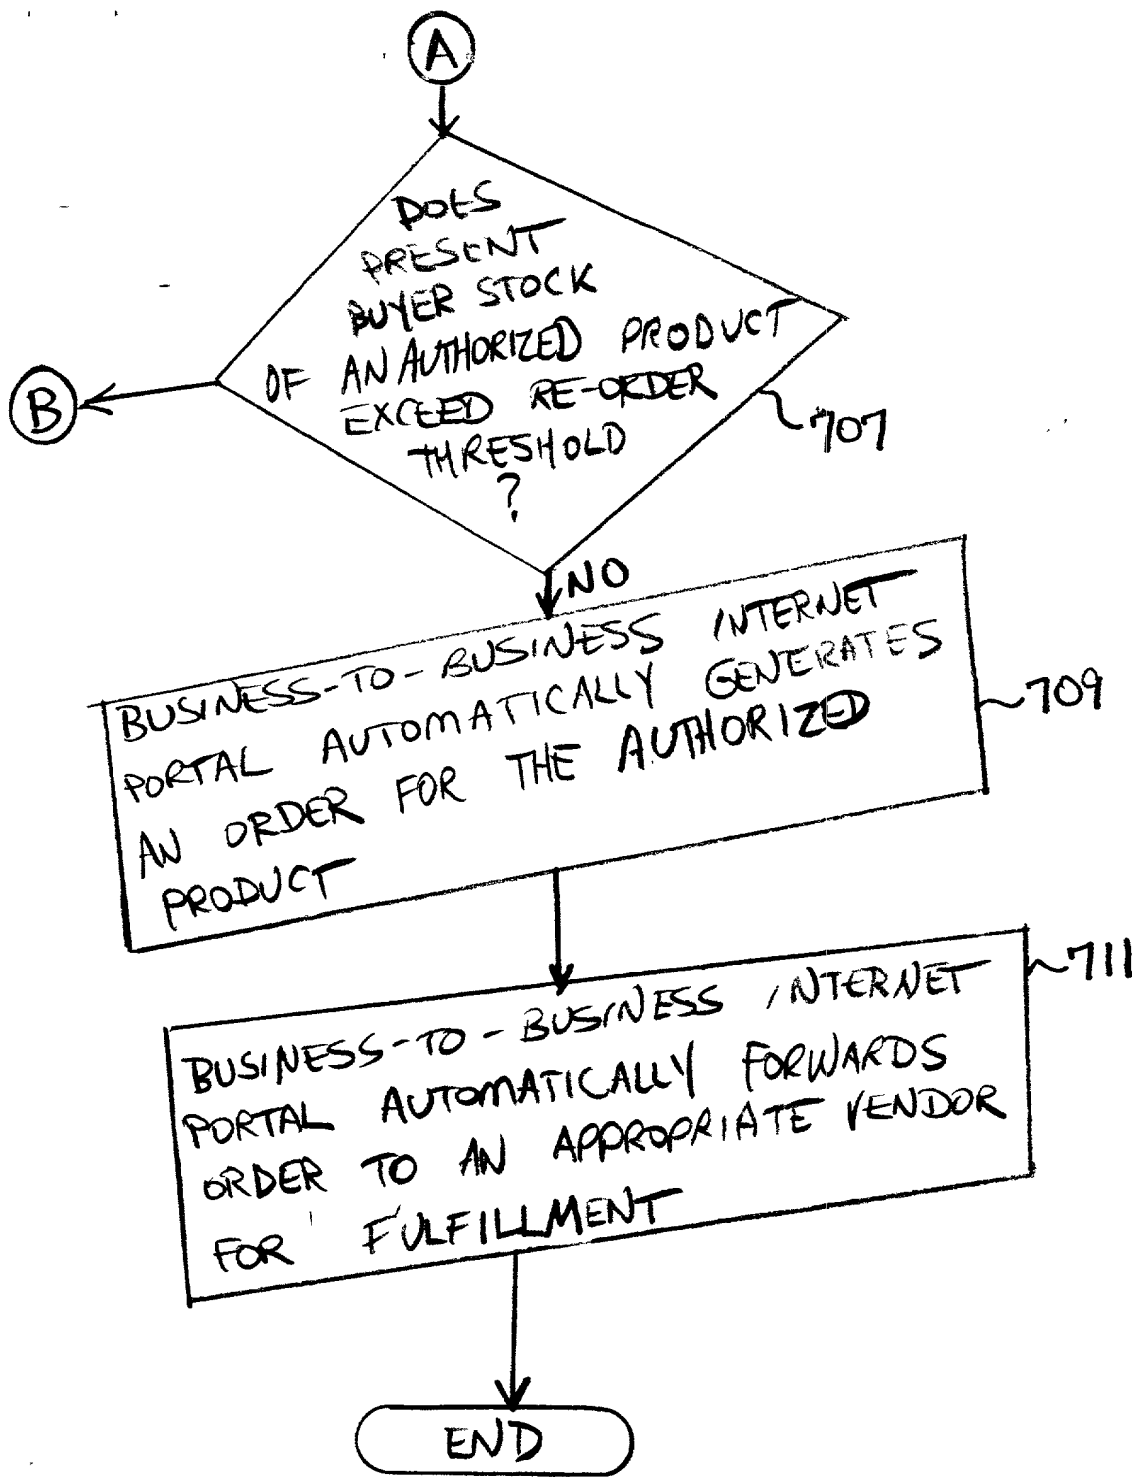 A
DOES
PRESENT
BUYER STOCK
OF AN AUTHORIZED PRODUCT
EXCEED RE-ORDER
THRESHOLD
?
B
707
NO
BUSINESS-TO-BUSINESS INTERNET
PORTAL AUTOMATICALLY GENERATES
AN ORDER FOR THE AUTHORIZED
PRODUCT
709
BUSINESS-TO-BUSINESS INTERNET
PORTAL AUTOMATICALLY FORWARDS
ORDER TO AN APPROPRIATE VENDOR
FOR FULFILLMENT
711
END